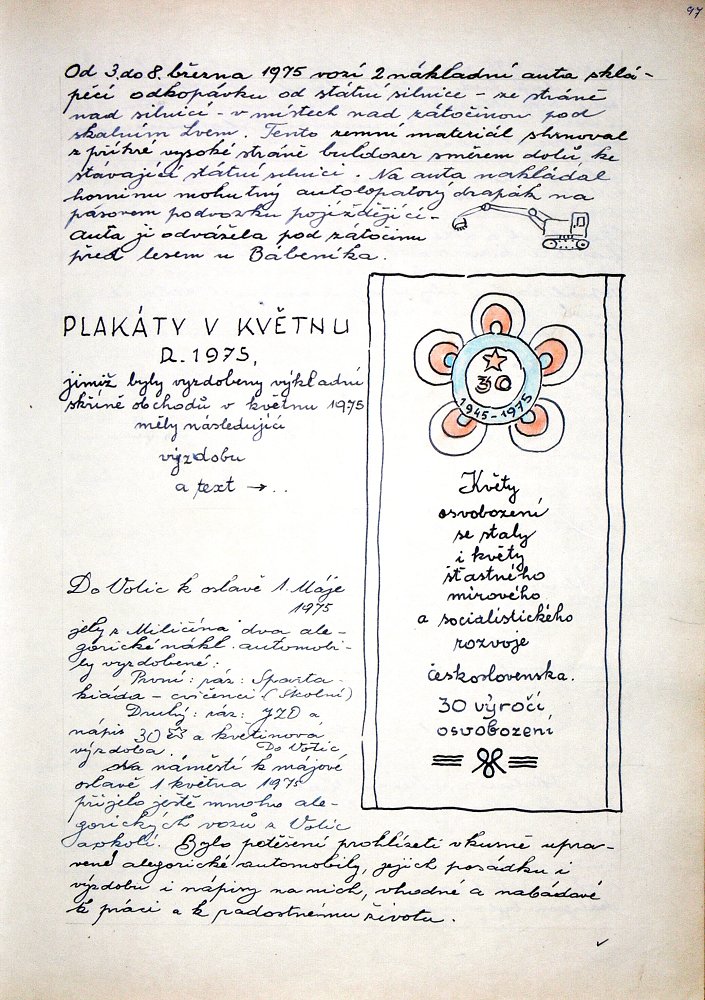 97
Od 3. do 8. března 1975 vozí 2 nákladní auta sklá-
pěcí odkopávku od státní silnice - ze stráně
nad silnicí - v místech nad zátočinou pod
skalním Lvem. Tento zemní materiál shrnoval
z příkré vysoké stráně buldozer směrem dolů, ke
stávající státní silnici. Na auta nakládal
horninu mohutný autolopatový drapák na
pásovém podvozku pojíždějící -
auta ji odvážela pod zátočinu
před lesem u Bábeníka.
PLAKÁTY V KVĚTNU
R. 1975,
jimiž byly vyzdobeny výkladní
skříně obchodů v květnu 1975
měly následující
výzdobu
a text → . .
30
1945-1975
Květy
osvobození
se staly
i květy
šťastného
mírového
a socialistického
rozvoje
Československa.
30 výročí
osvobození
Do Votic k oslavě 1. Máje
1975
jely z Miličína dva ale-
gorické nákl. automobi-
ly vyzdobené:
První: ráz: Sparta-
kiáda - cvičenci (školní)
Druhý: ráz: JZD a
nápis 30 let a květinová
výzdoba. Do Votic
na náměstí k májové
oslavě 1 května 1975
přijelo ještě mnoho ale-
gorických vozů z Votic
a okolí. Bylo potěšení prohlížeti vkusně upra-
vené alegorické automobily, jejich posádku i
výzdobu i nápisy na nich, vhodné a nabádavé
k práci a k radostnému životu.